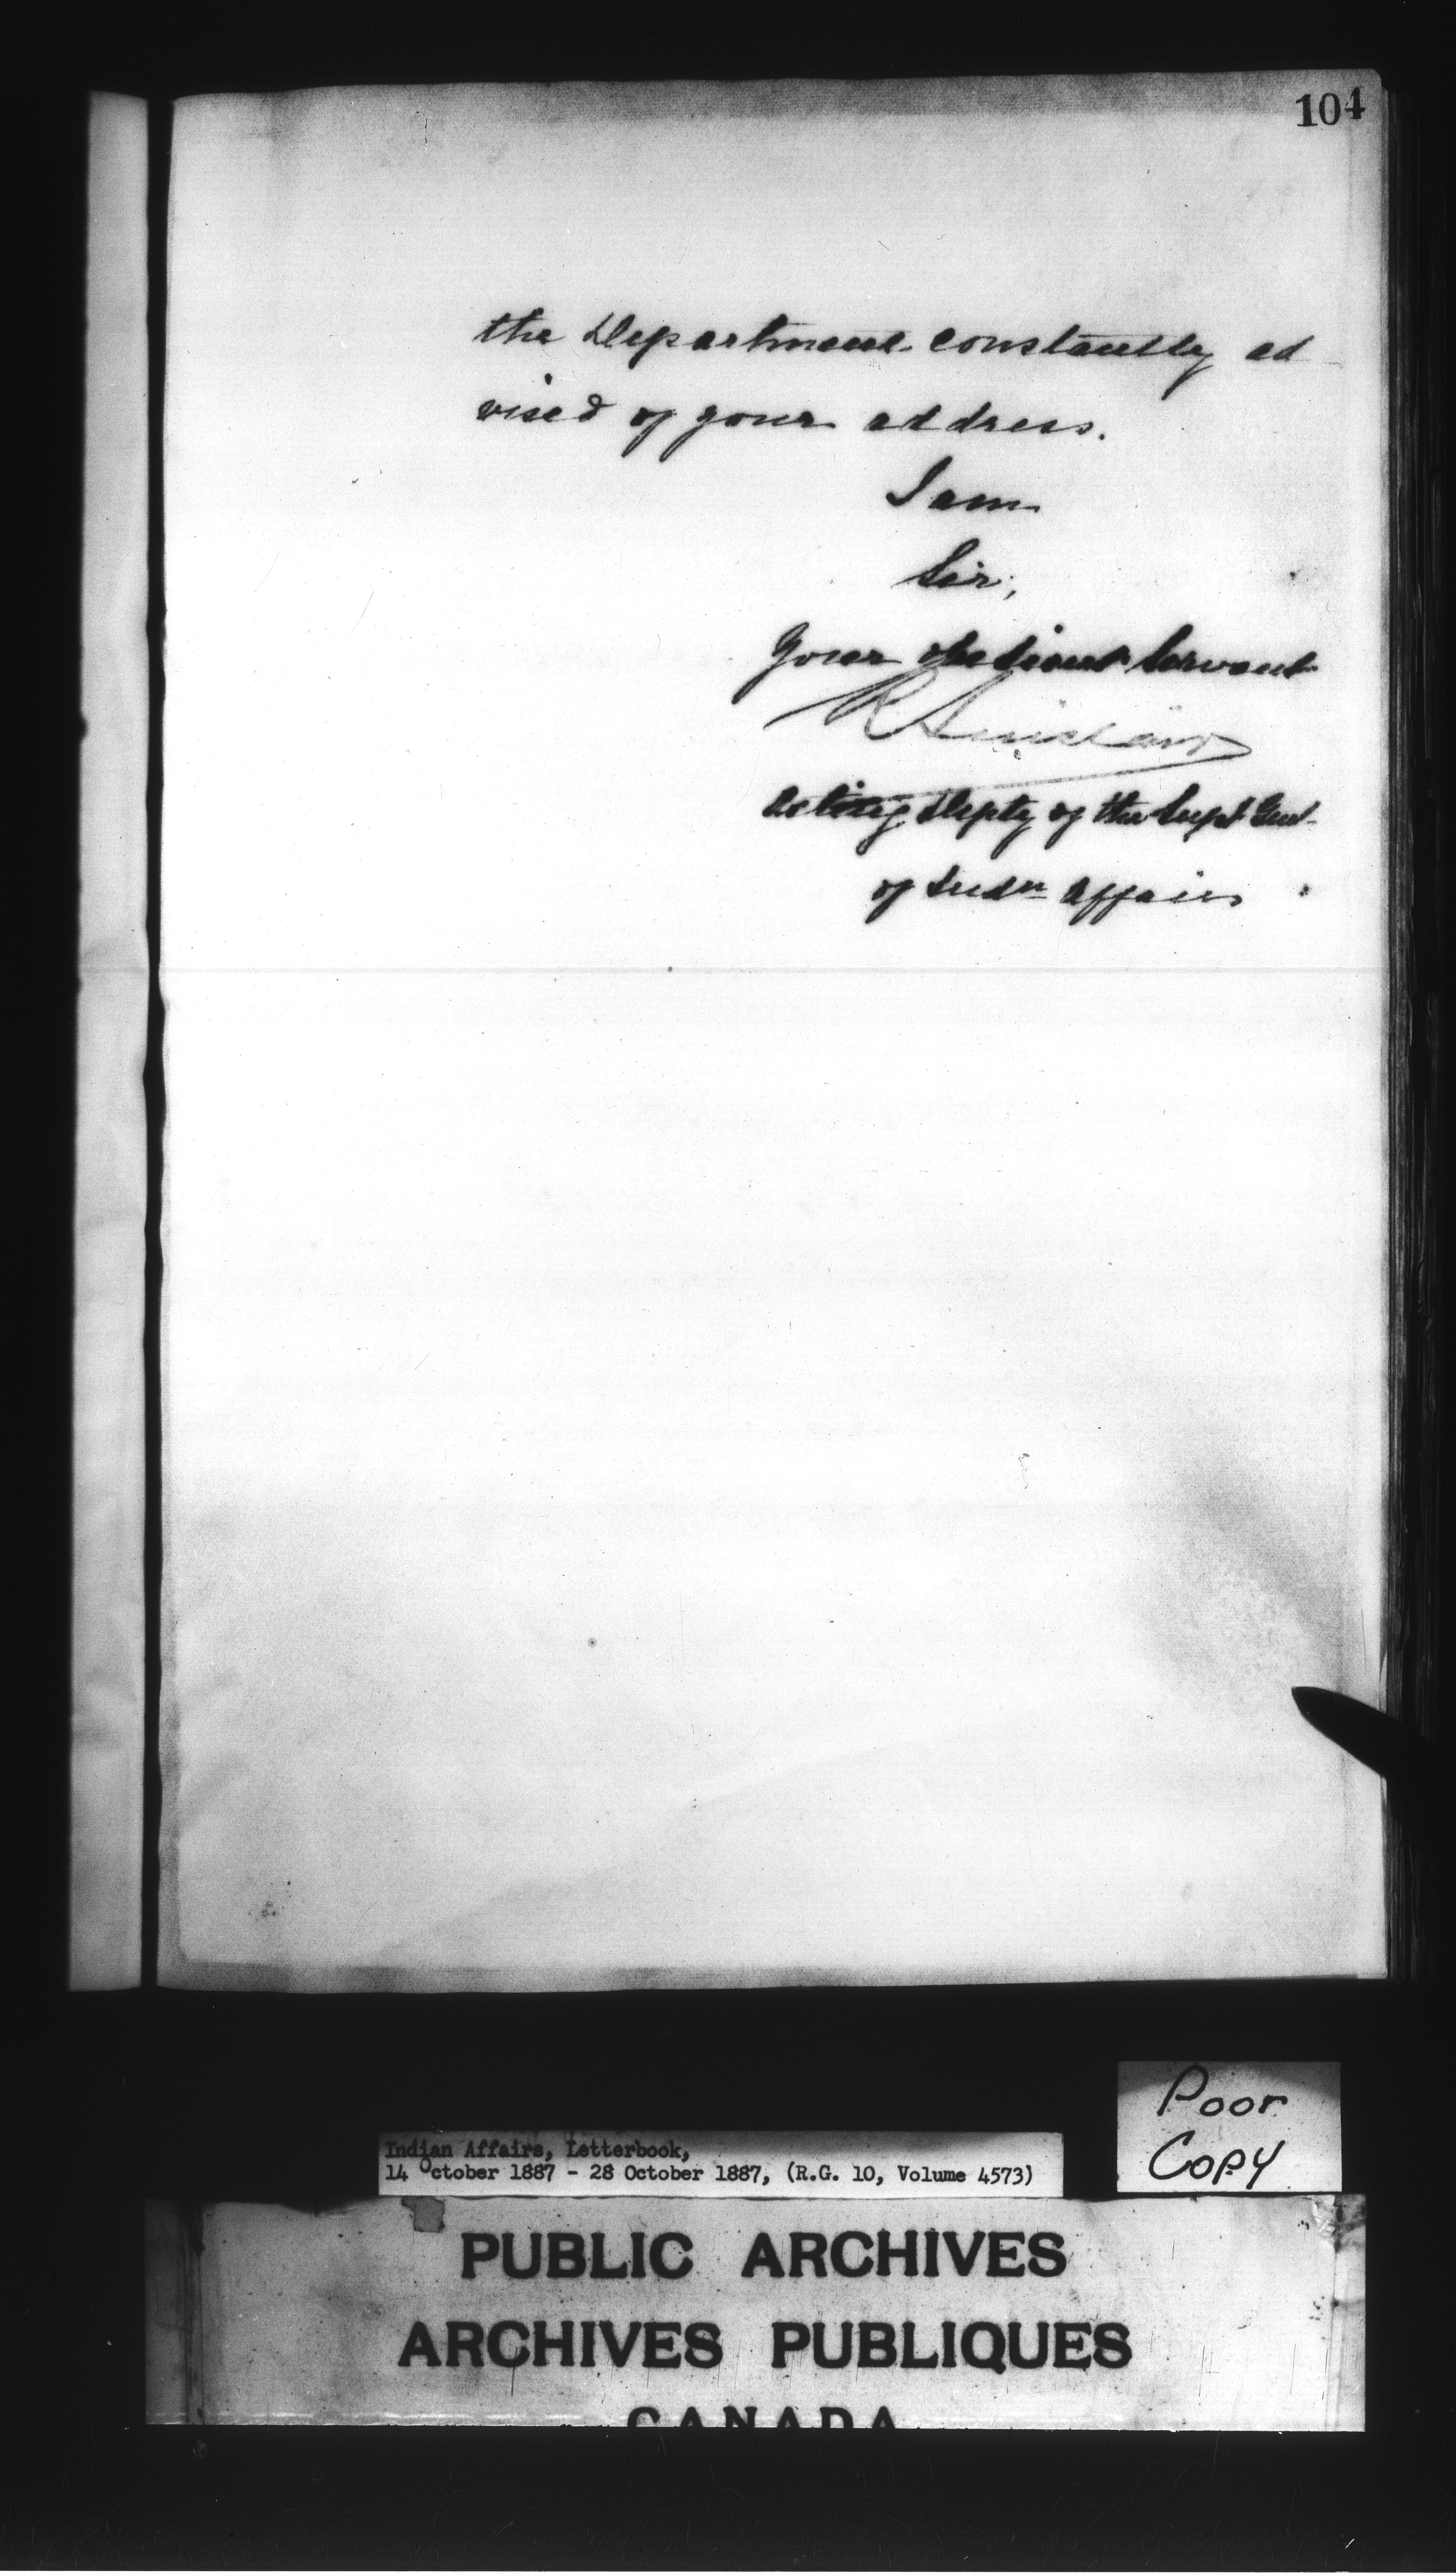 104
the Department constantly ad
vised of your address.
I am
Sir,
Your obedient Servant
R Sinclair
Acting Depty of the Supt Genl
of Indn Affairs
Poor
Copy
Indian Affairs, Letterbook,
14 October 1887 - 28 October 1887, (R.G. 10, Volume 4573)
PUBLIC ARCHIVES
ARCHIVES PUBLIQUES
CANADA